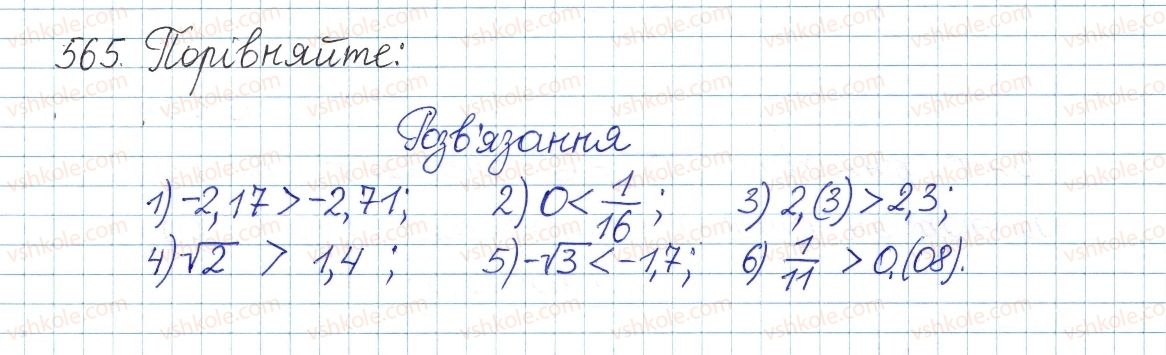 565. Порівняйте:
Розв'язання
1) -2,17 > -2,71; 2) 0 < 1/16; 3) 2,(3) > 2,3;
4) √2 > 1,4; 5) -√3 < -1,7; 6) 1/11 > 0,(08).